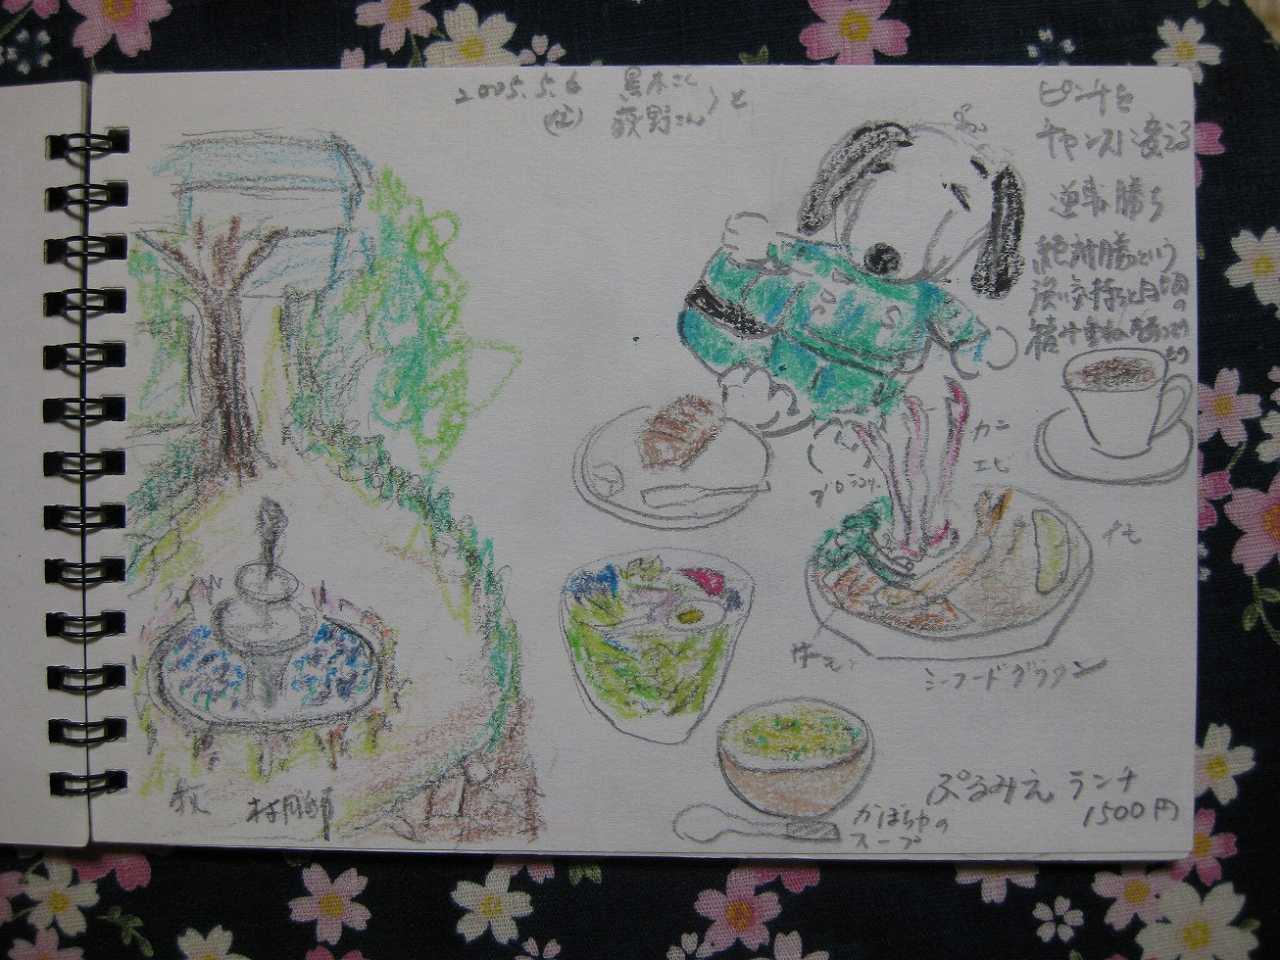 2005.5.6
黒木さん
荻野さん と
ピンチを
チャンスに変える
逆転勝ち
絶対勝つという
強い気持ちと
積み重ね
S
S
カニ
エビ
ブロッコリー
イモ
シーフードグラタン
ぷるみえランチ
1500円
かぼちゃの
スープ